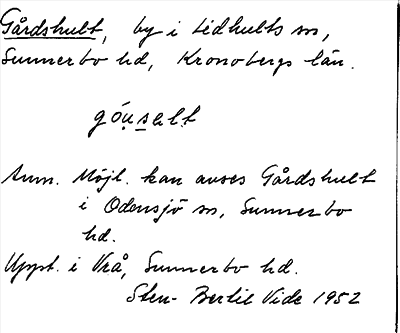 Gårdshult, by i Lidhults sn,
Sunnerbo hd, Kronobergs län.
góu̯sa̱lt
Anm. Möjl. kan avses Gårdshult
i Odensjö sn, Sunnerbo
hd.
Uppt. i Vrå, Sunnerbo hd.
Sten-Bertil Vide 1952